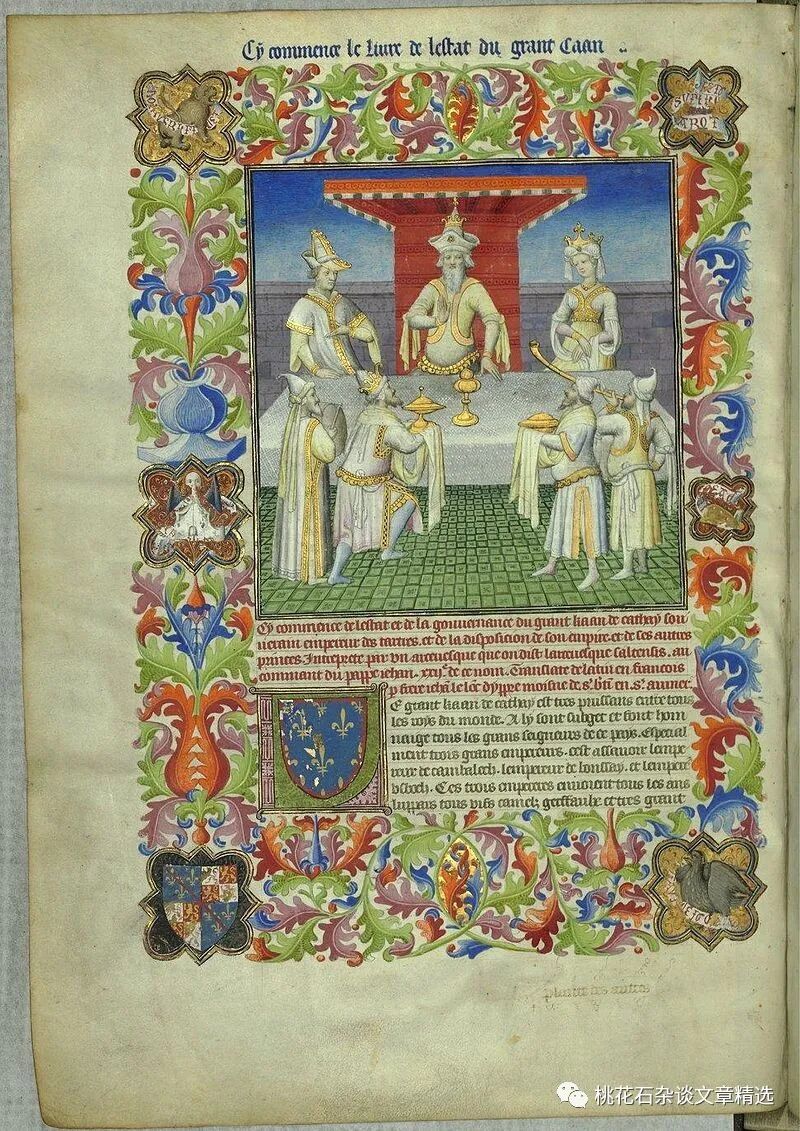 Cy commence le liure de lestat du grant Caan
Cy commence de lestat et de la gouuernance du grant kaan de cathay sou
uerain empereur des tartres. et de la disposicion de son empire. et de ses autres
princes. Interprete par vn arceuesque que on dist larceuesque saltensis. au
commant du pappe iehan .xxije. de ce nom. Translate de latin en francois
p frere iehan le lonc dyppre moisne de st. btin en st. aumer.
Le grant kaan de cathay est tres puissans entre tous
les roys du monde. A ly sont subget et font hom
mage tous les grans seigneurs de ce pays. Especial
ment trois grans empereurs. cest assauoir lempe
reur de cambalech. lempereur de boussay. et lempere
vsbech. Ces trois empereres enuoient tous les ans
lupars tous vifs camelz gerffaulx et tres grant
plante des autres
桃花石杂谈文章精选